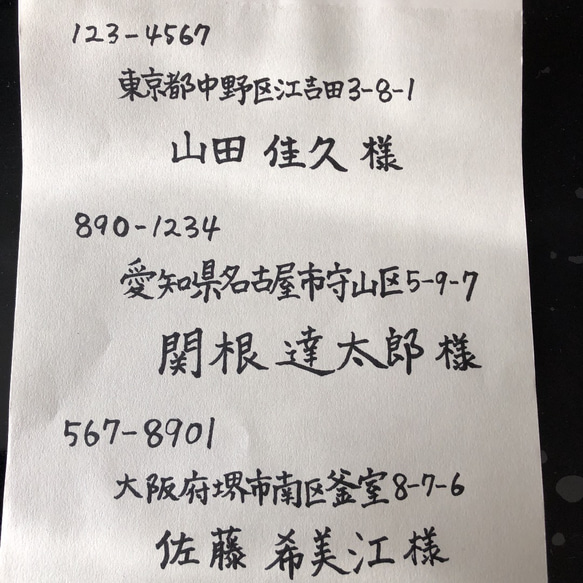 123-4567
東京都中野区江吉田3-8-1
山田 佳久 様
890-1234
愛知県名古屋市守山区5-9-7
関根 達太郎 様
567-8901
大阪府堺市南区釜室8-7-6
佐藤 希美江 様